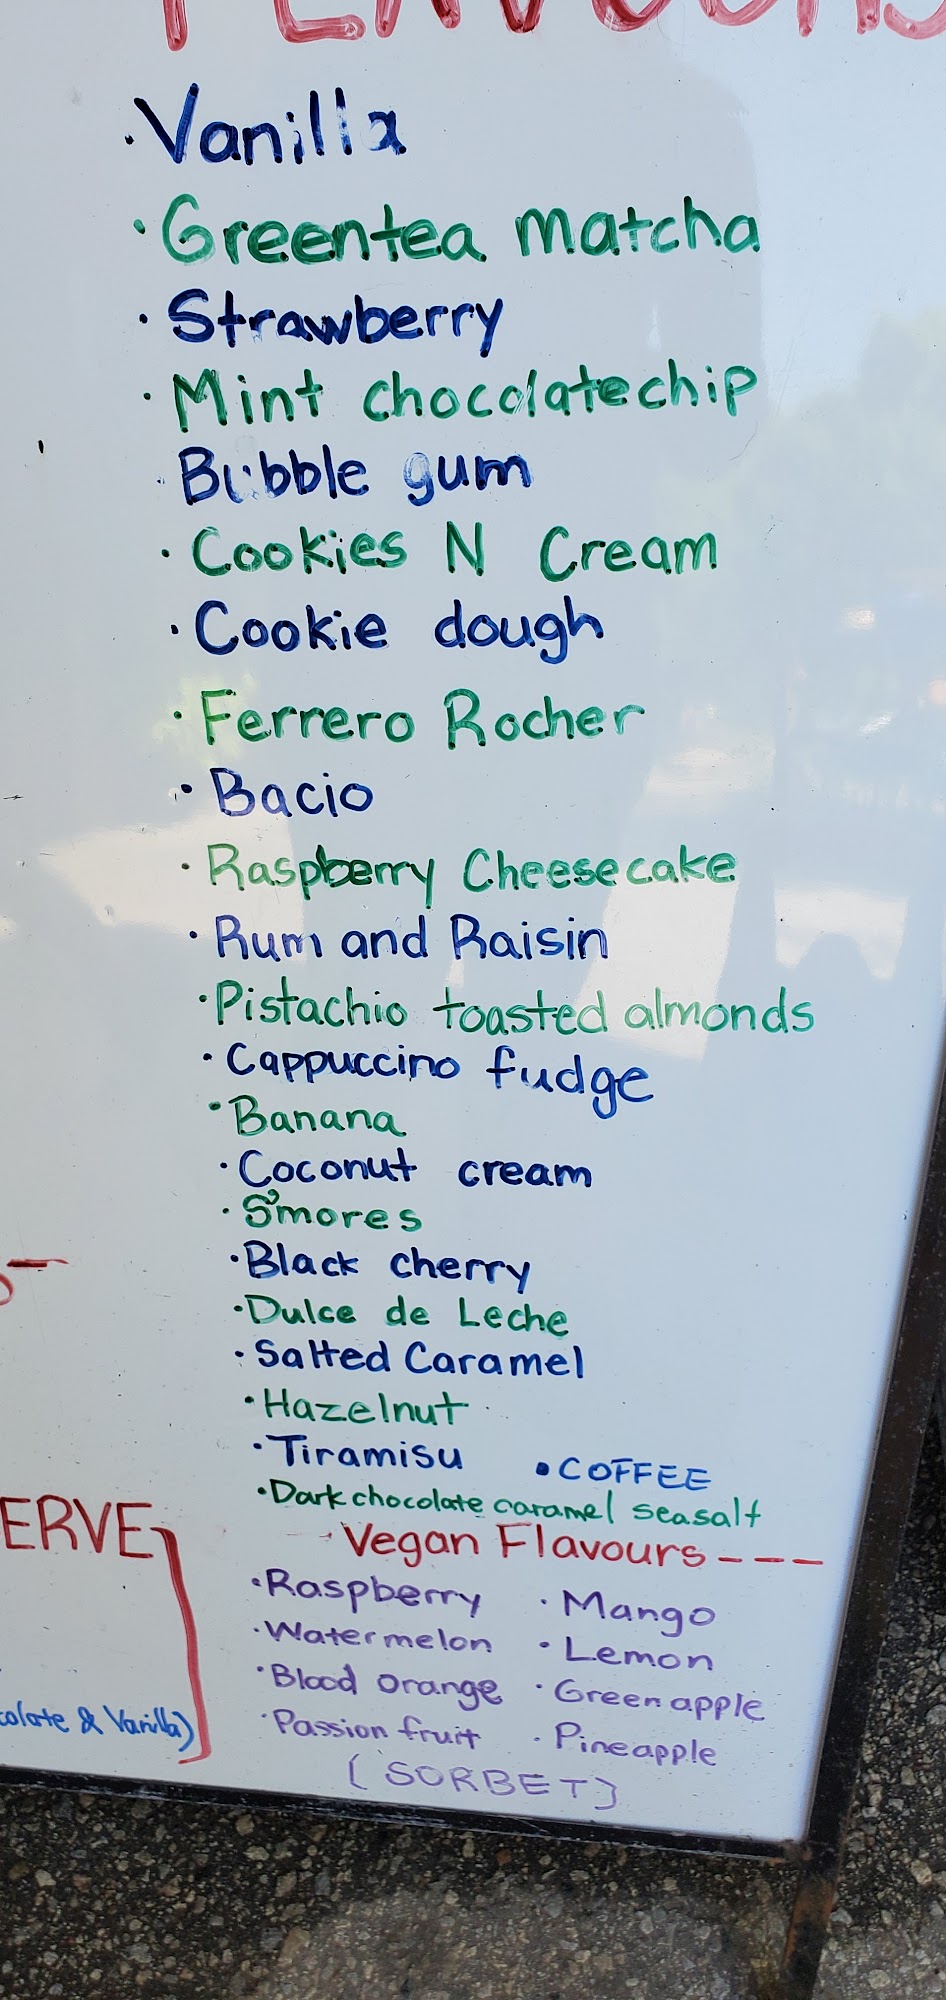 FLAVOURS
·Vanilla
·Greentea matcha
·Strawberry
·Mint chocolatechip
·Bubble gum
·Cookies N Cream
·Cookie dough
·Ferrero Rocher
·Bacio
·Raspberry Cheesecake
·Rum and Raisin
·Pistachio toasted almonds
·Cappuccino fudge
·Banana
·Coconut cream
·S'mores
·Black cherry
·Dulce de Leche
·Salted Caramel
·Hazelnut
·Tiramisu ·COFFEE
·Dark chocolate caramel seasalt
ERVE
Vegan Flavours----
·Raspberry ·Mango
·Watermelon ·Lemon
·Blood orange ·Green apple
colate & Vanilla)
·Passion fruit ·Pineapple
(SORBET)